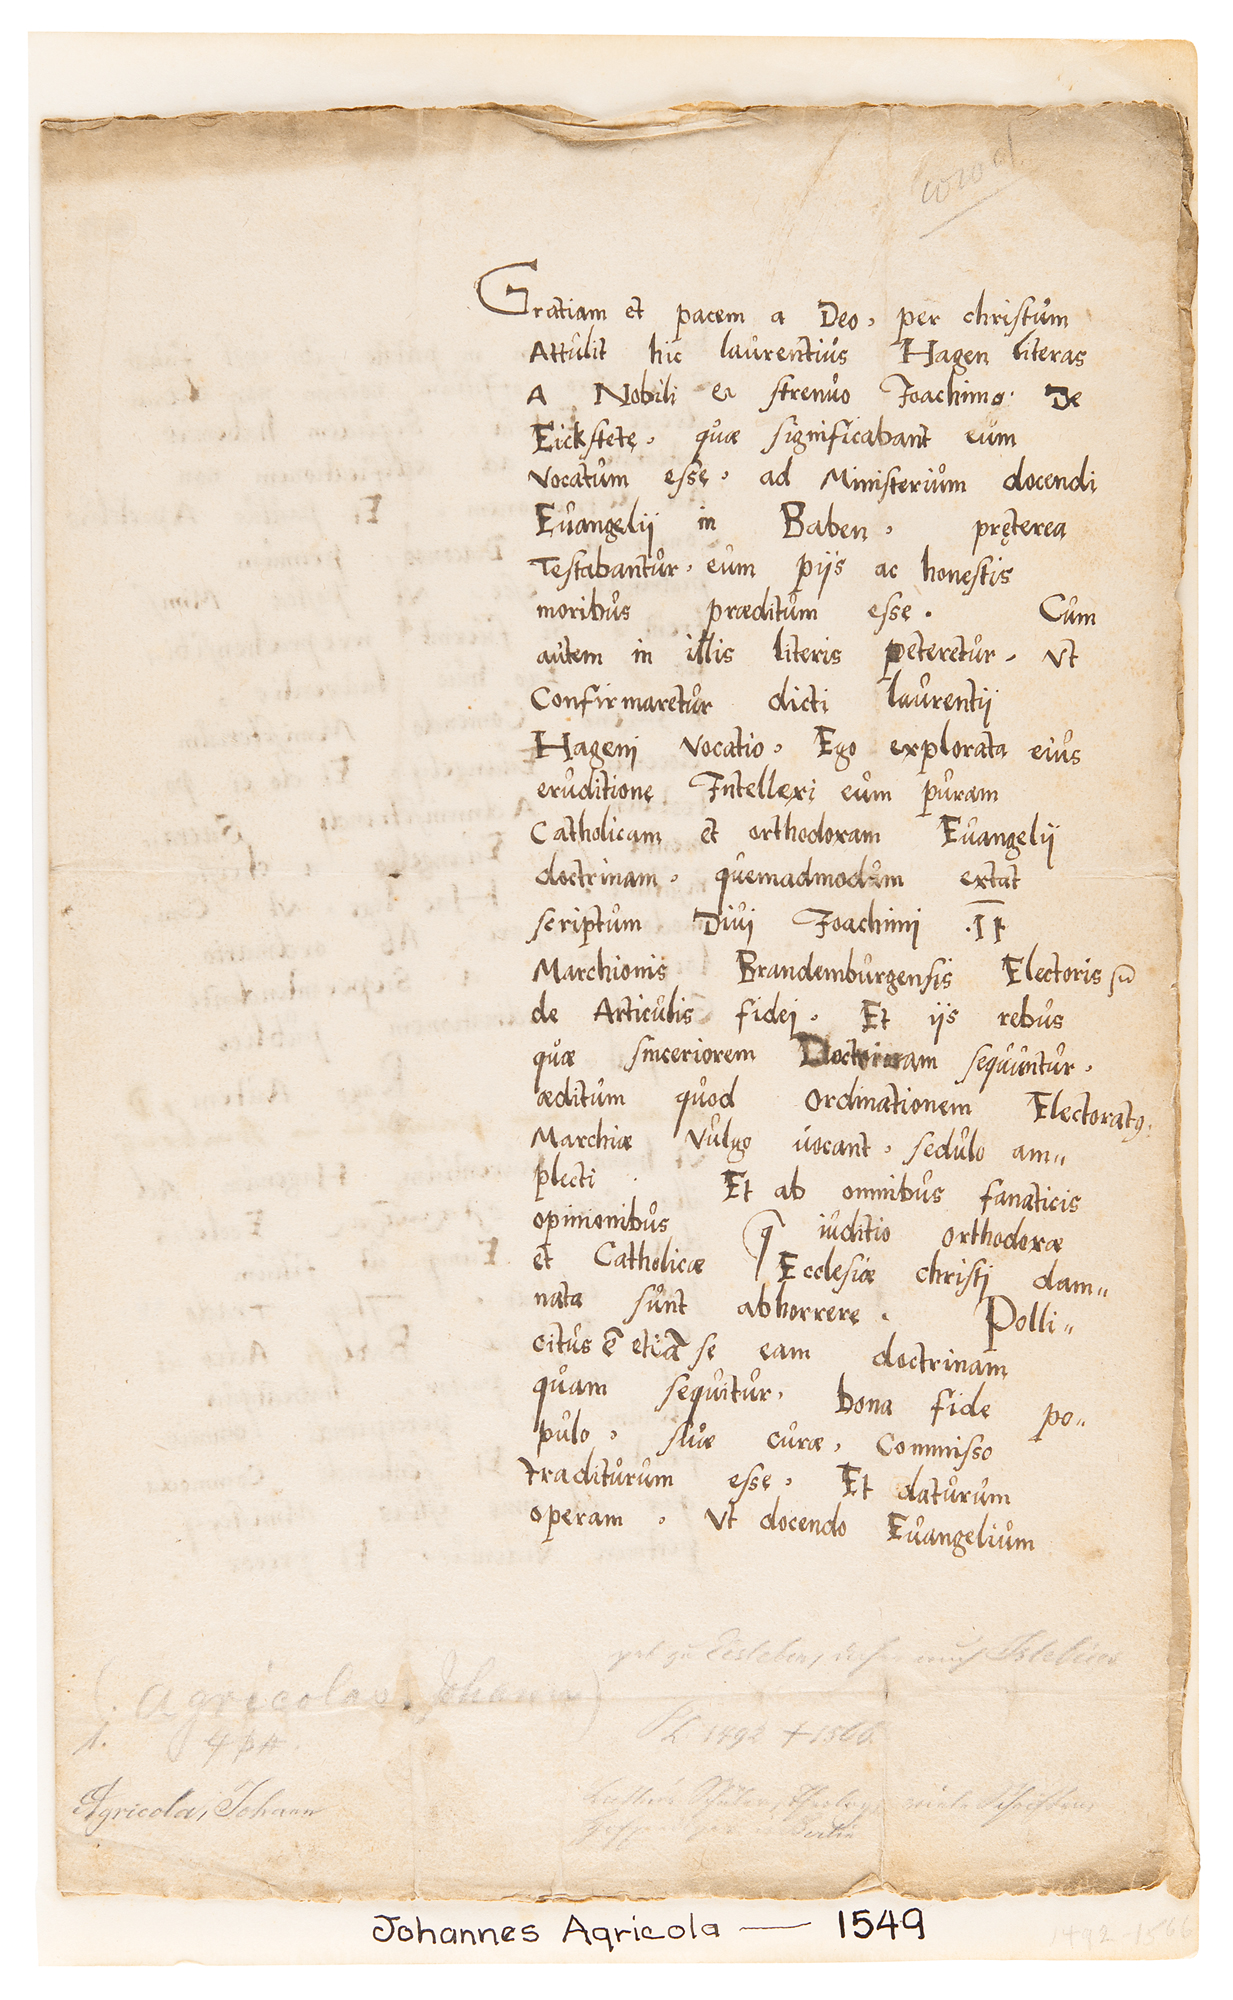 Gratiam et pacem a Deo, per christum
Attulit hic laurentius Hagen literas
A Nobili et strenuo Joachimo De
Eickstete, quæ significabant eum
vocatum esse, ad Ministerium docendi
Euangelij in Baben, pręterea
Testabantur, eum pijs ac honestis
moribus præditum esse. Cum
autem in illis literis peteretur, vt
Confirmaretur dicti laurentij
Hagenj vocatio, Ego explorata eius
eruditione Intellexi eum puram
Catholicam et orthodoxam Euangelij
doctrinam, quemadmodum extat
scriptum Diuj Joachimj .II
Marchionis Brandemburgensis Electoris
de Articulis fidej, Et ijs rebus
quæ sinceriorem Doctrinam sequuntur,
æditum quod Ordinationem Electoratꝰ
Marchiæ vulgo uocant, sedulo am„
plecti Et ab omnibus fanaticis
opinionibus q iuditio orthodoxæ
et Catholicæ Ecclesiæ christj dam„
nata sunt abhorrere. Polli„
citus ē etiā se eam doctrinam
quam sequitur, bona fide po„
pulo, suæ curæ, Commisso
traditurum esse, Et daturum
operam, vt docendo Euangelium
geb zu Eisleben, daher auch Islebius
(. Agricola, Johann)
1. 4
1492 † 1566
Agricola, Johann
Luthers Schüler, Theolog, viele Schriften,
Berlin
Johannes Agricola — 1549
1492-1566